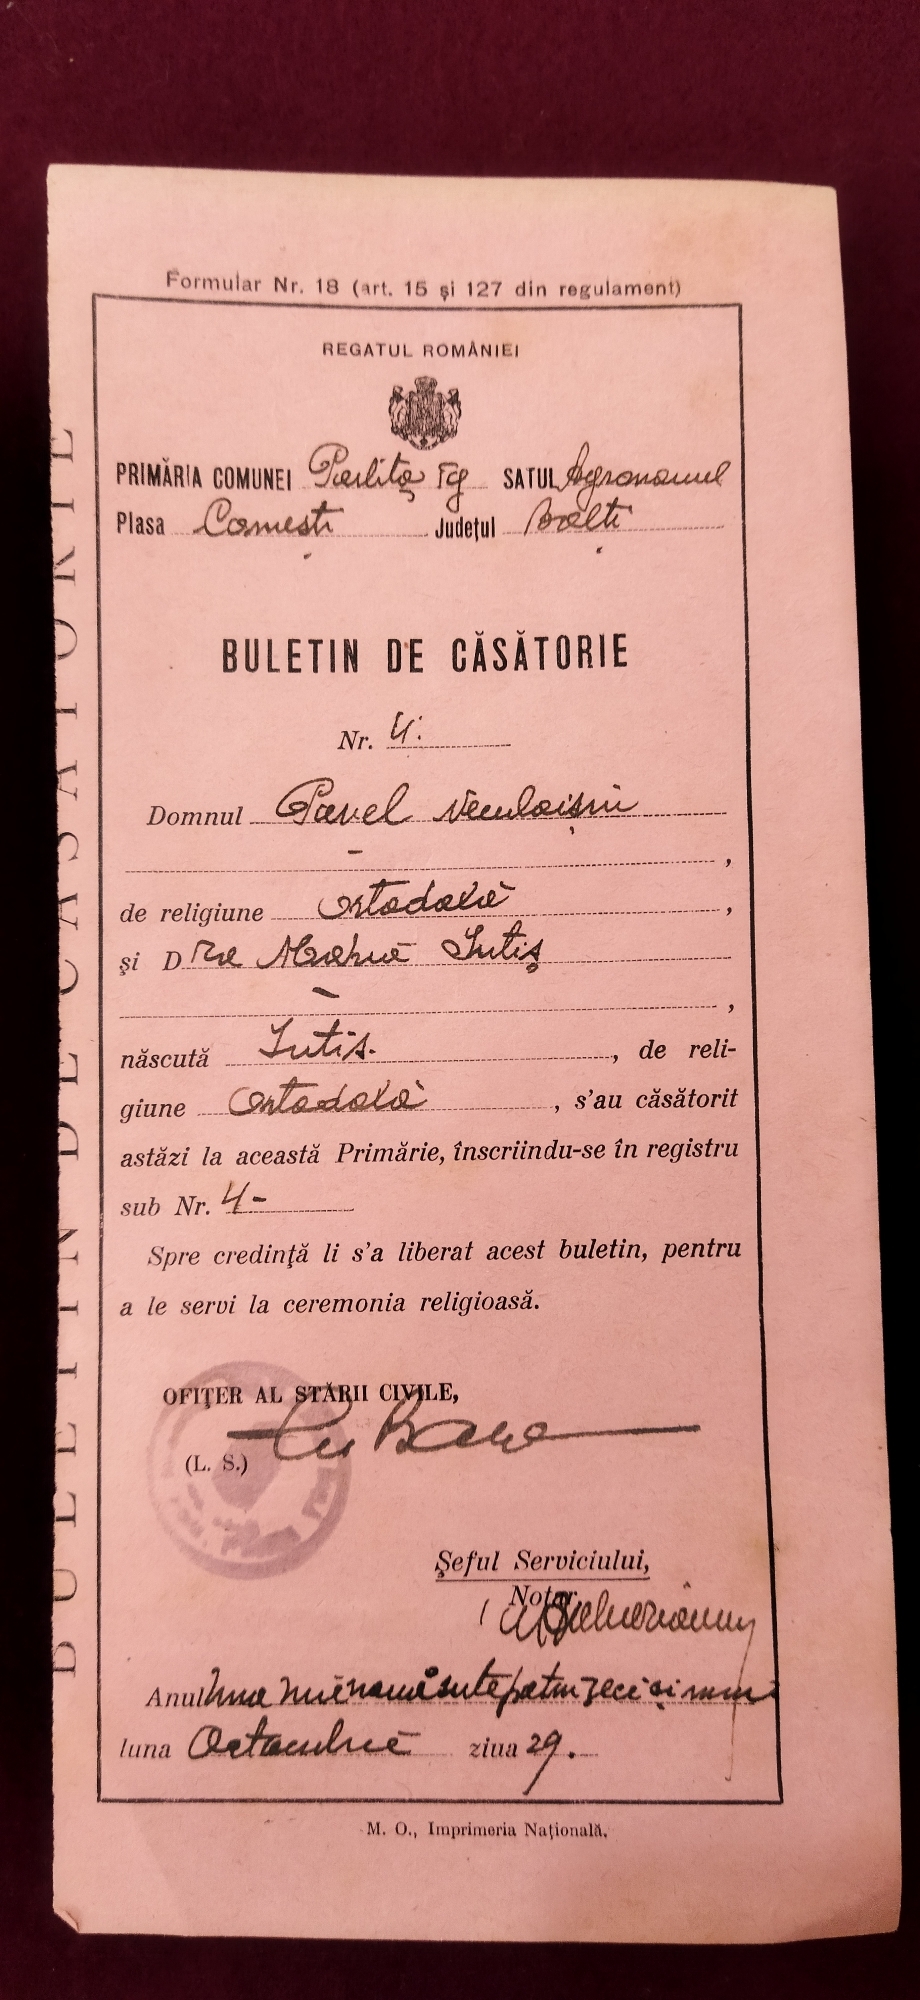 BULETIN DE CĂSĂTORIE
Formular Nr. 18 (art. 15 și 127 din regulament)
REGATUL ROMÂNIEI
PRIMĂRIA COMUNEI Parlița Tg SATUL Agronomul
Plasa Cornesti Județul Balti
BULETIN DE CĂSĂTORIE
Nr. 4.
Domnul Pavel
,
de religiune ortodoxă ,
și D Iutiș
,
născută Iutis. , de reli-
giune Ortodoxă , s'au căsătorit
astăzi la această Primărie, înscriindu-se în registru
sub Nr. 4-
Spre credință li s'a liberat acest buletin, pentru
a le servi la ceremonia religioasă.
OFIȚER AL STĂRII CIVILE,
(L. S.)
Șeful Serviciului,
Notar
Anul Una mie nouă sute patruzeci și unu
luna Octombrie ziua 29.
M. O., Imprimeria Națională.